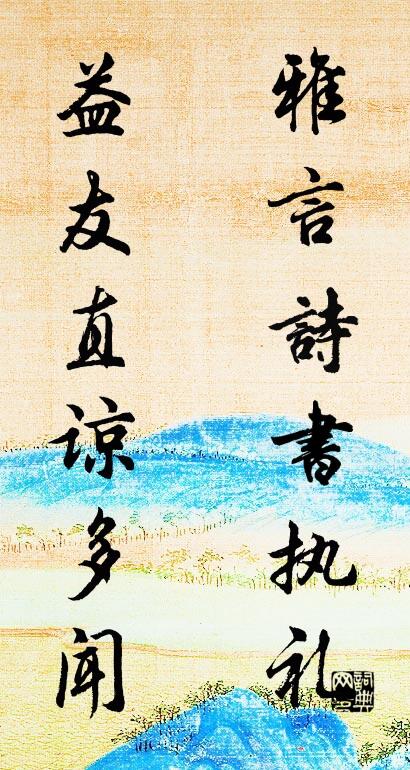 雅言詩書执礼
益友直谅多闻
詞典网